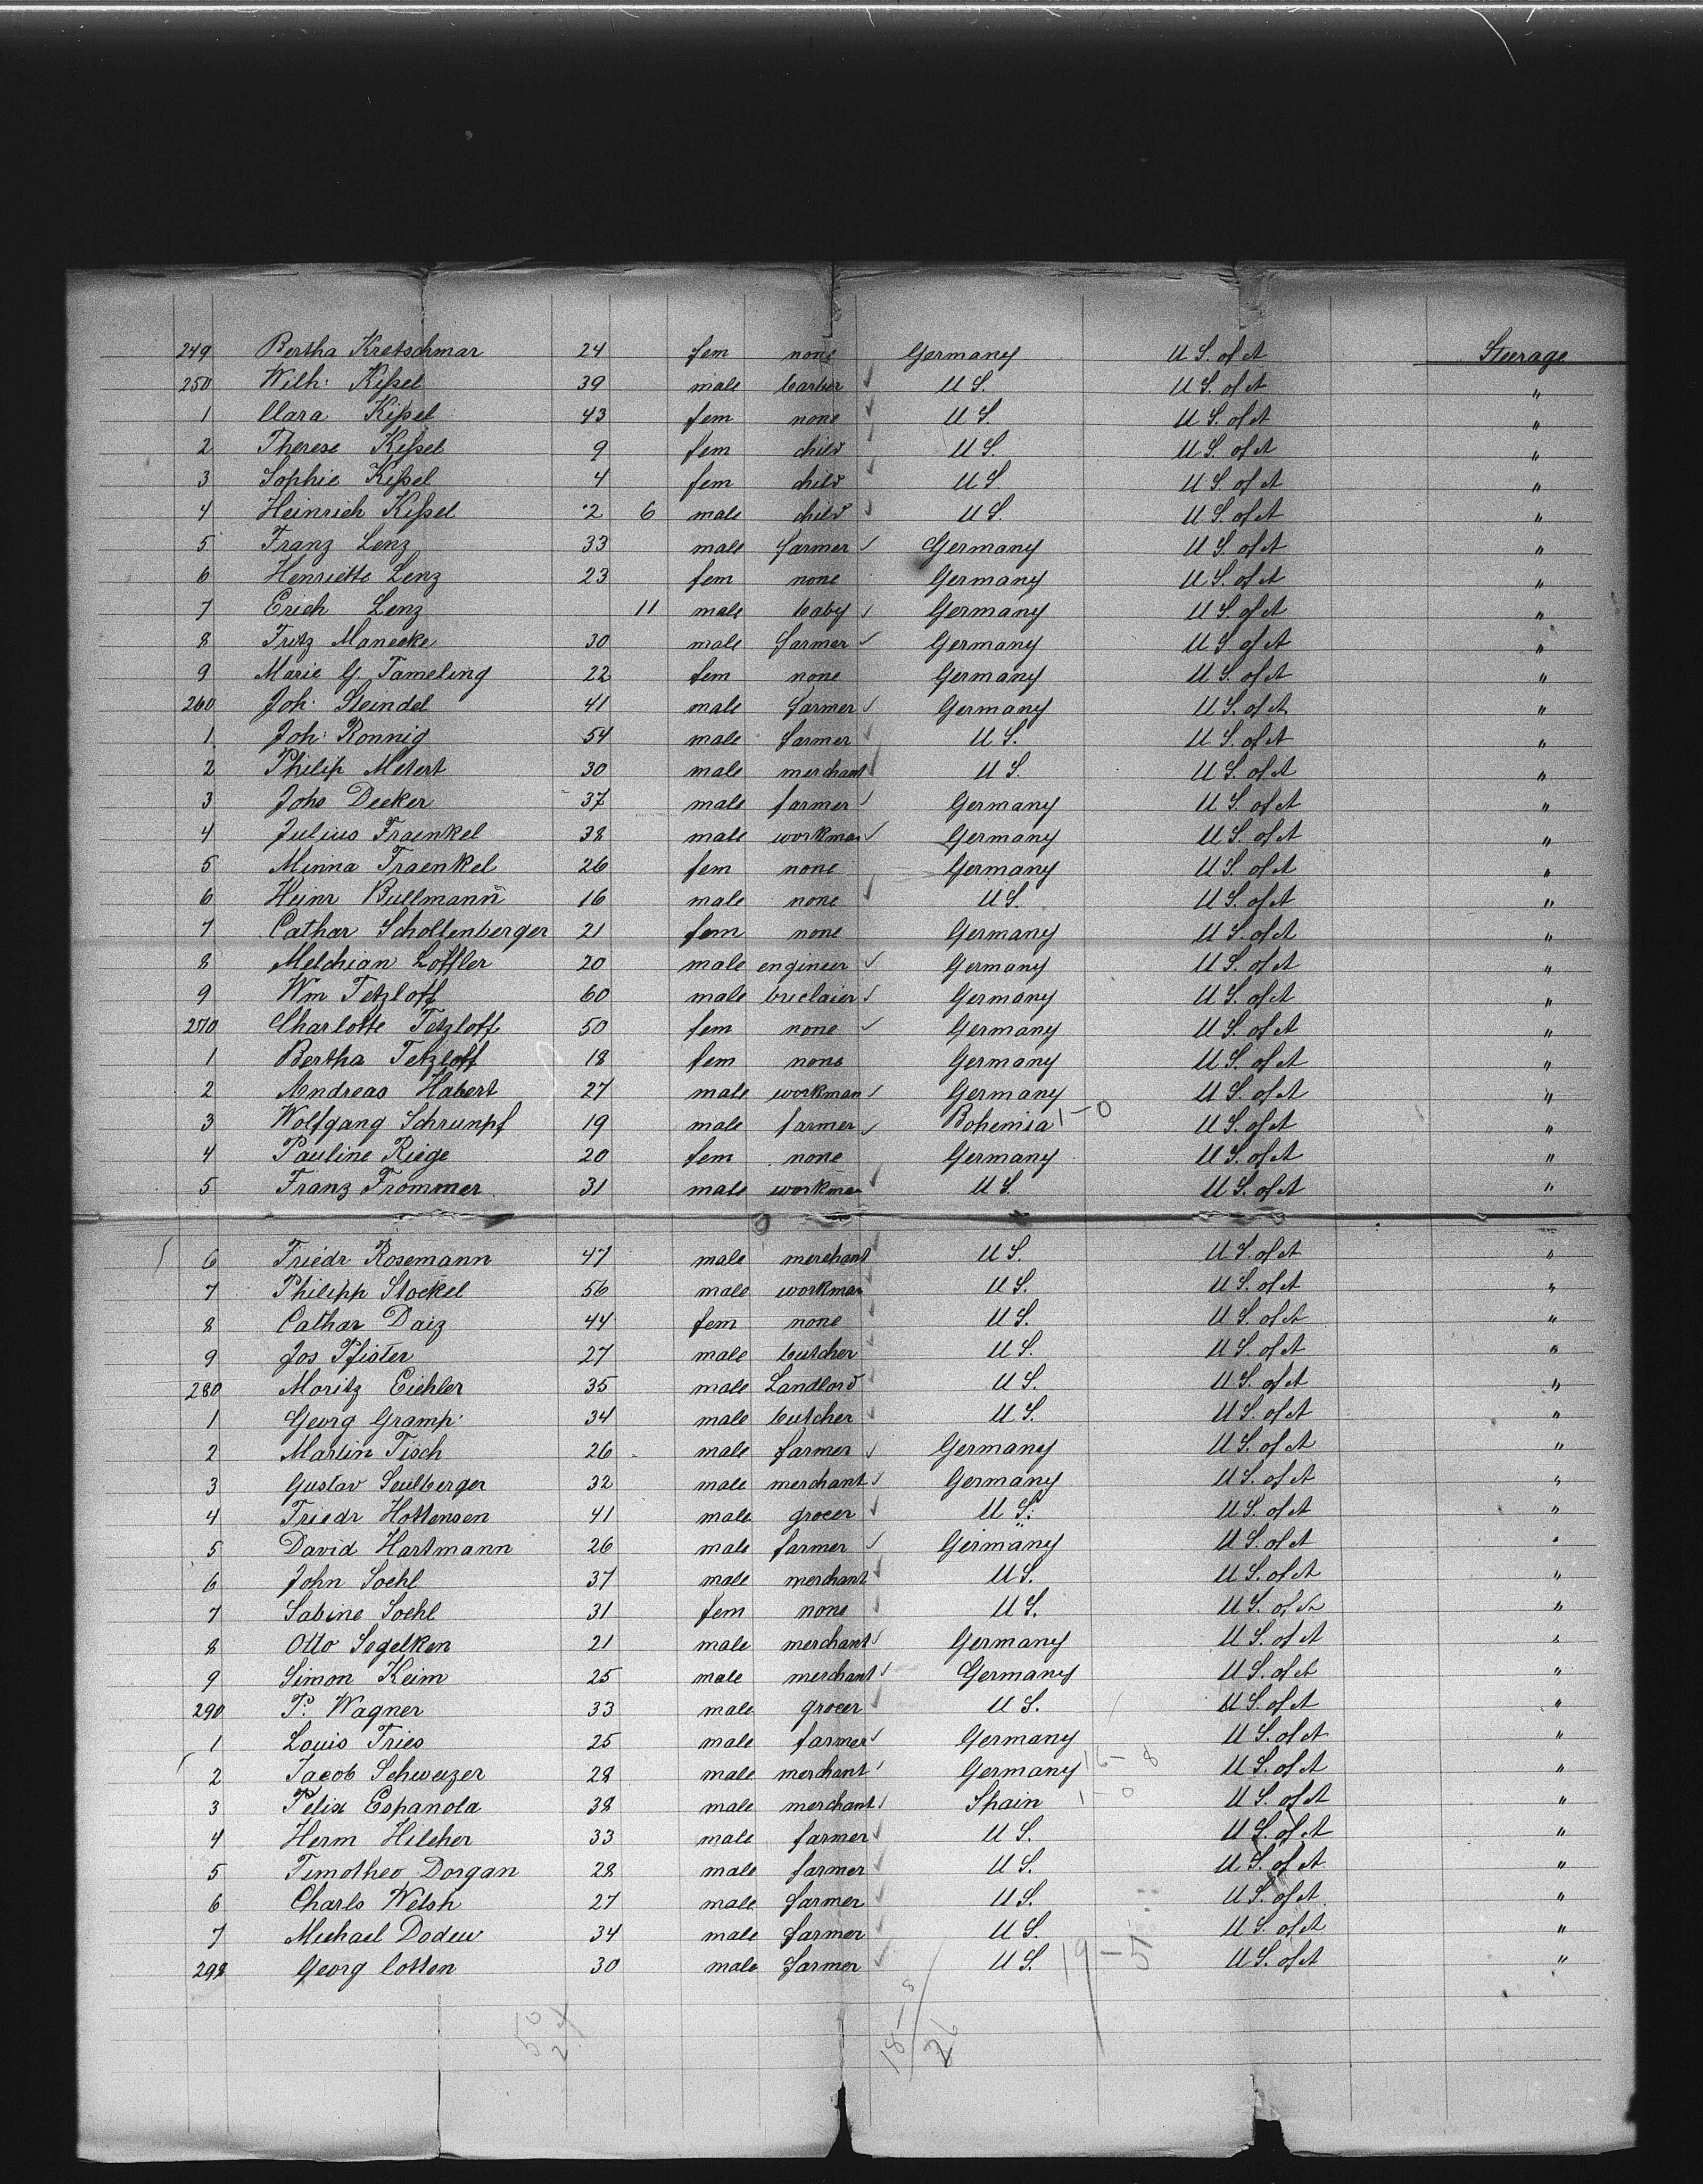 249 Bertha Kretschmar 24 fem none Germany U S. of A Steerage
250 Wilh: Kißel 39 male barber U S. U S. of A "
1 Clara Kißel 43 fem none U S. U S. of A "
2 Therese Kißel 9 fem child U S. U S. of A "
3 Sophie Kißel 4 fem child U S U S. of A "
4 Heinrich Kißel 2 6 male child U S. U S. of A "
5 Franz Lenz 33 male farmer Germany U S. of A "
6 Henriette Lenz 23 fem none Germany U S. of A "
7 Erich Lenz 11 male baby Germany U S. of A "
8 Fritz Manecke 30 male farmer Germany U S. of A "
9 Marie G. Tameling 22 fem none Germany U S. of A "
260 Joh: Steindel 41 male farmer Germany U S. of A "
1 Joh: Ronnig 54 male farmer U S. U S. of A "
2 Philip Metert 30 male merchant U S. U S. of A "
3 Johs Decker 37 male farmer Germany U S. of A "
4 Julius Fraenkel 38 male workman Germany U S. of A "
5 Minna Fraenkel 26 fem none Germany U S. of A "
6 Heinr Bullmann 16 male none U S. U S. of A "
7 Cathar Schollenberger 21 fem none Germany U S. of A "
8 Melchian Löffler 20 male engineer Germany U S. of A "
9 Wm Tetzloff 60 male briclaier Germany U S. of A "
270 Charlotte Tetzloff 50 fem none Germany U S. of A "
1 Bertha Tetzloff 18 fem none Germany U S. of A "
2 Andreas Habert 27 male workman Germany U S. of A "
3 Wolfgang Schrumpf 19 male farmer Bohemia 1-0 U S. of A "
4 Pauline Riege 20 fem none Germany U S. of A "
5 Franz Frommer 31 male workman U S. U S. of A "
6 Friedr Rosemann 47 male merchant U S. U S. of A "
7 Philipp Stockel 56 male workman U S. U S. of A "
8 Cathar Daiz 44 fem none U S. U S. of A "
9 Jos Pfister 27 male butcher U S. U S. of A "
280 Moritz Eichler 35 male Landlord U S. U S. of A "
1 Georg Gramp: 34 male butcher U S. U S. of A "
2 Martin Tisch 26 male farmer Germany U S. of A "
3 Gustav Seulberger 32 male merchant Germany U S. of A "
4 Friedr Hottensen 41 male grocer U S. U S. of A "
5 David Hartmann 26 male farmer Germany U S. of A "
6 John Soehl 37 male merchant U S. U S. of A "
7 Sabine Soehl 31 fem none U S. U S. of A "
8 Otto Segelken 21 male merchant Germany U S. of A "
9 Simon Keim 25 male merchant Germany U S. of A "
290 P. Wagner 33 male grocer U S. U S. of A "
1 Louis Fries 25 male farmer Germany U S. of A "
2 Jacob Schweizer 28 male merchant Germany 16-8 U S. of A "
3 Felix Espanola 38 male merchant Spain 1-0 U S. of A "
4 Herm Hilcher 33 male farmer U S. U S. of A "
5 Timotheo Dorgan 28 male farmer U S. U S. of A "
6 Charls Welsh 27 male farmer U S. U S. of A "
7 Michael Dodew 34 male farmer U S. U S. of A "
298 Georg Cotten 30 male farmer U S. 19-5 U S. of A "
50 18-8
24 26